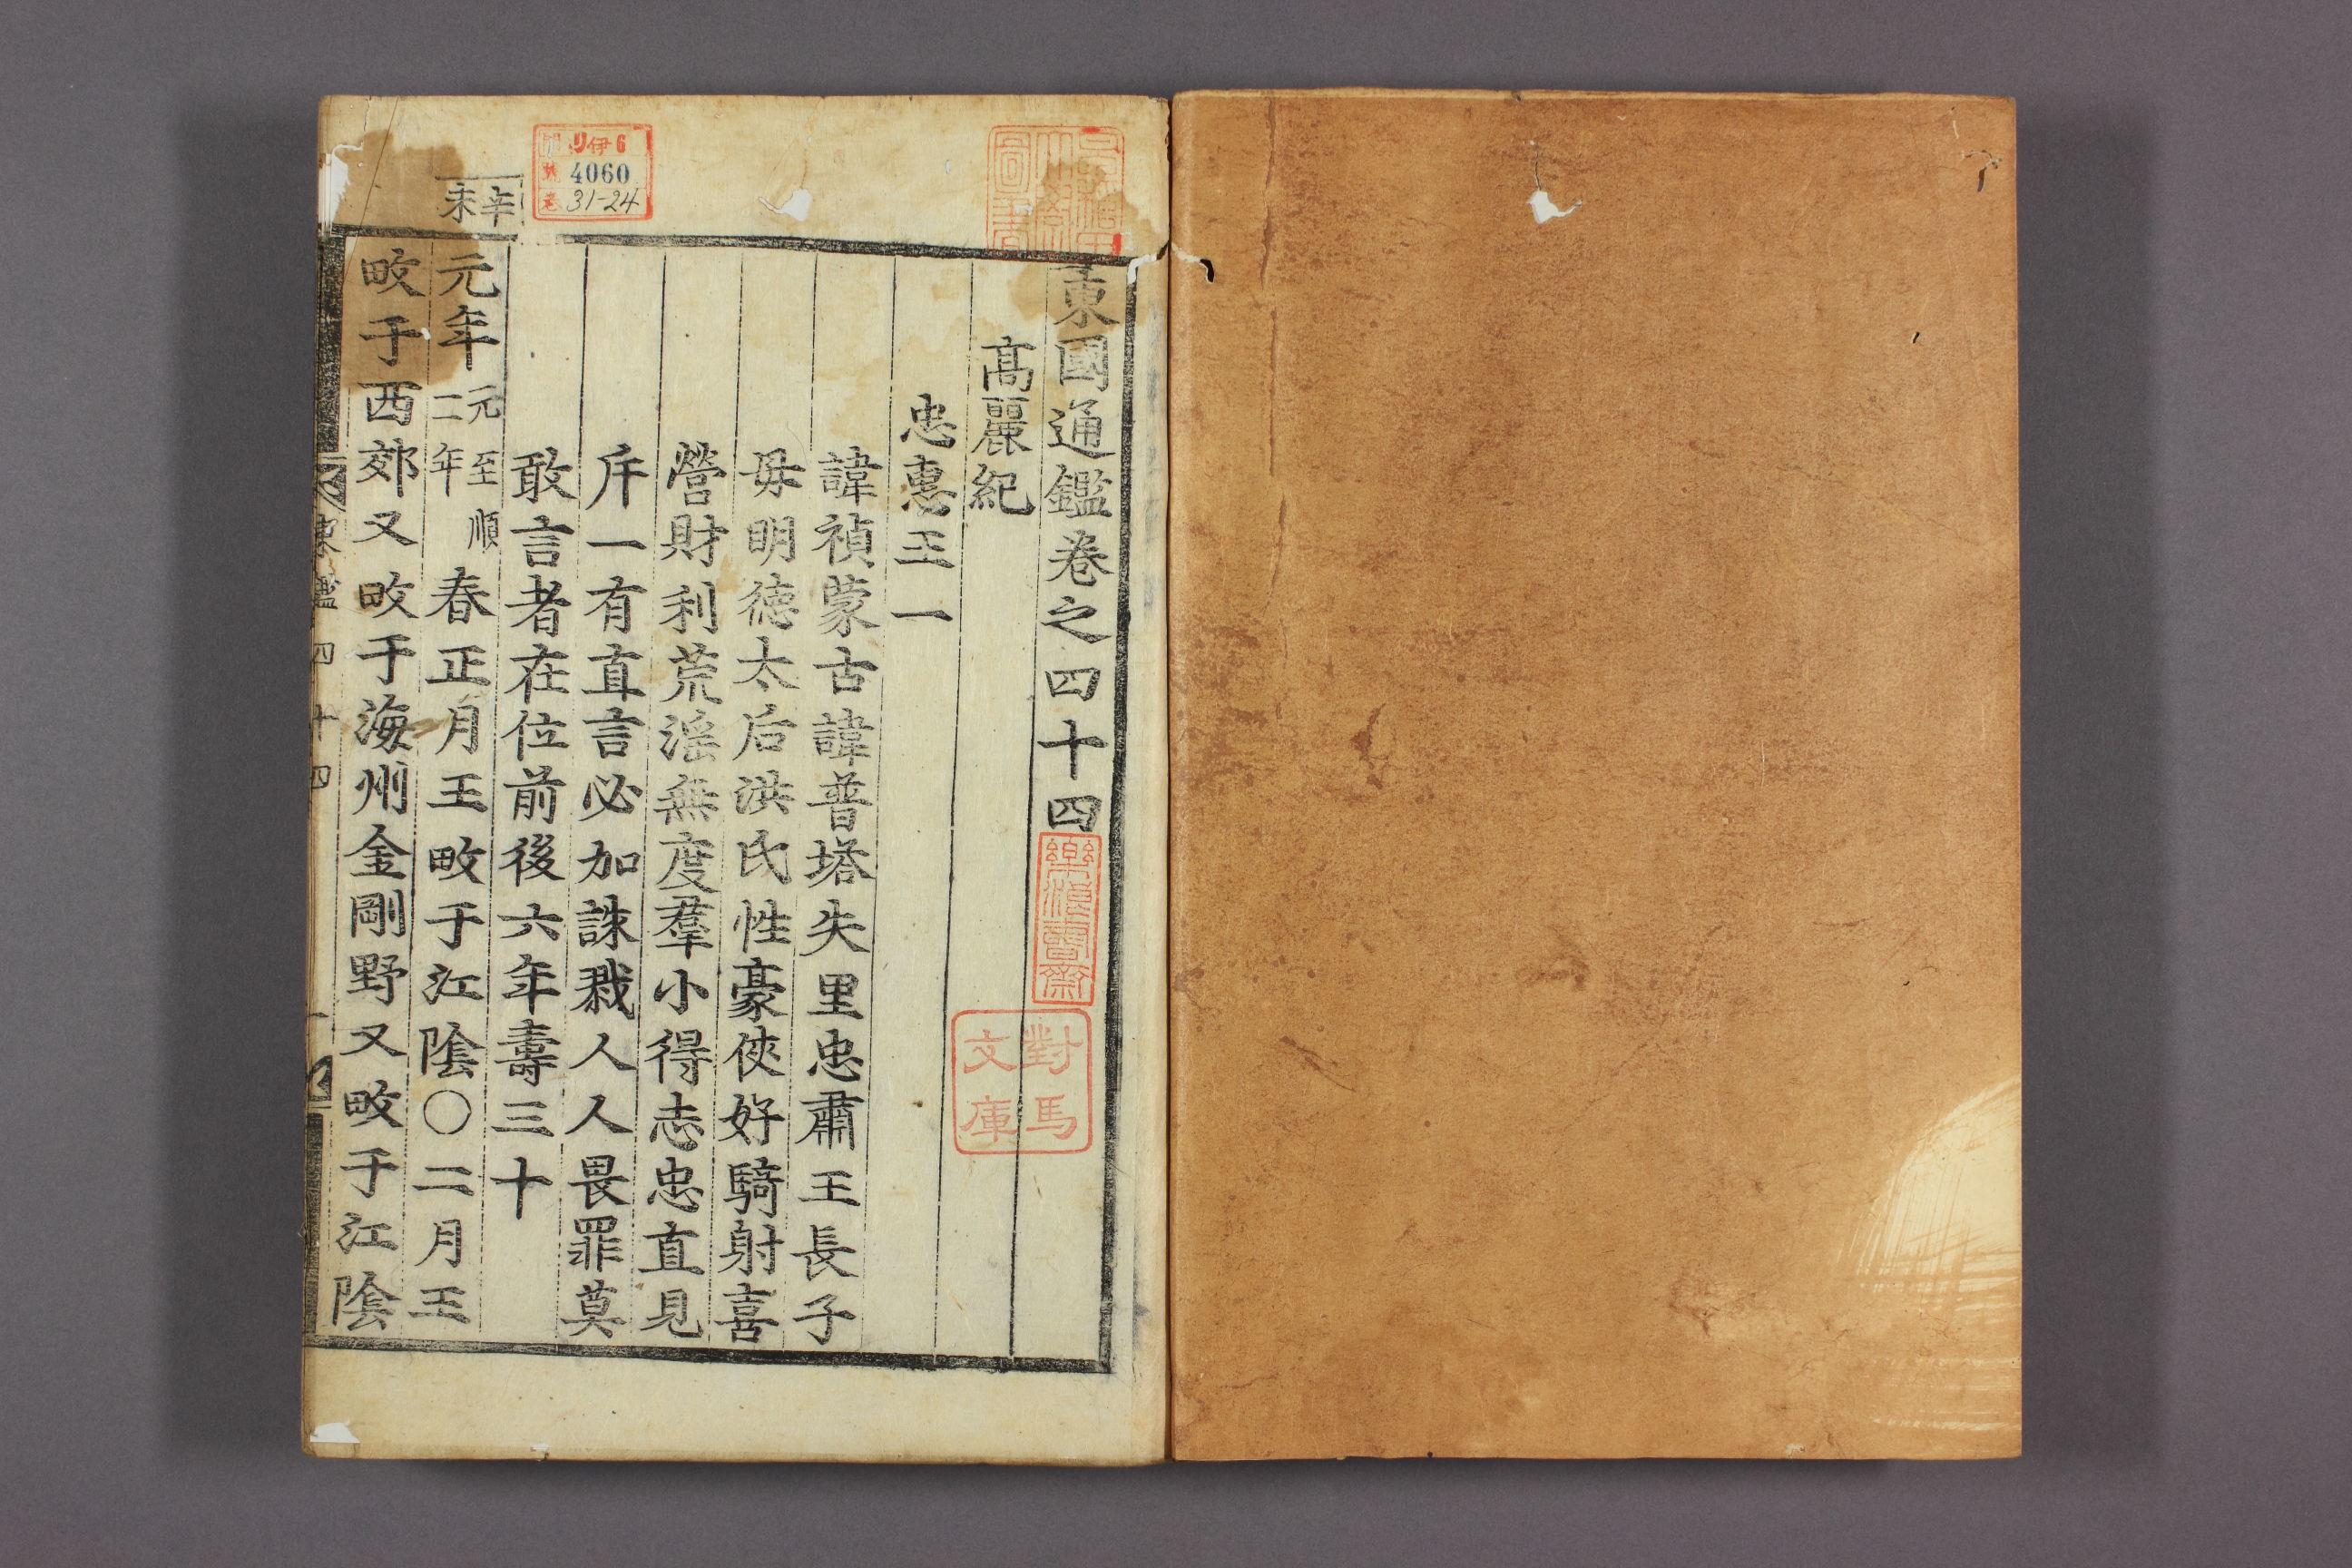 東國通鑑卷之四十四
高麗紀
忠惠王一
諱禎蒙古諱普塔失里忠肅王長子
毋明德太后洪氏性豪俠好騎射喜
營財利荒滛無度羣小得志忠直見
斥一有直言必加誅戮人人畏罪莫
敢言者在位前後六年壽三十
辛未
元年元至順二年春正月王畋于江陰〇二月王
畋于西郊又畋于海州金剛野又畋于江陰
東鑑四十四
一
樂浪書齋
對馬文庫
伊6
4060
31-24